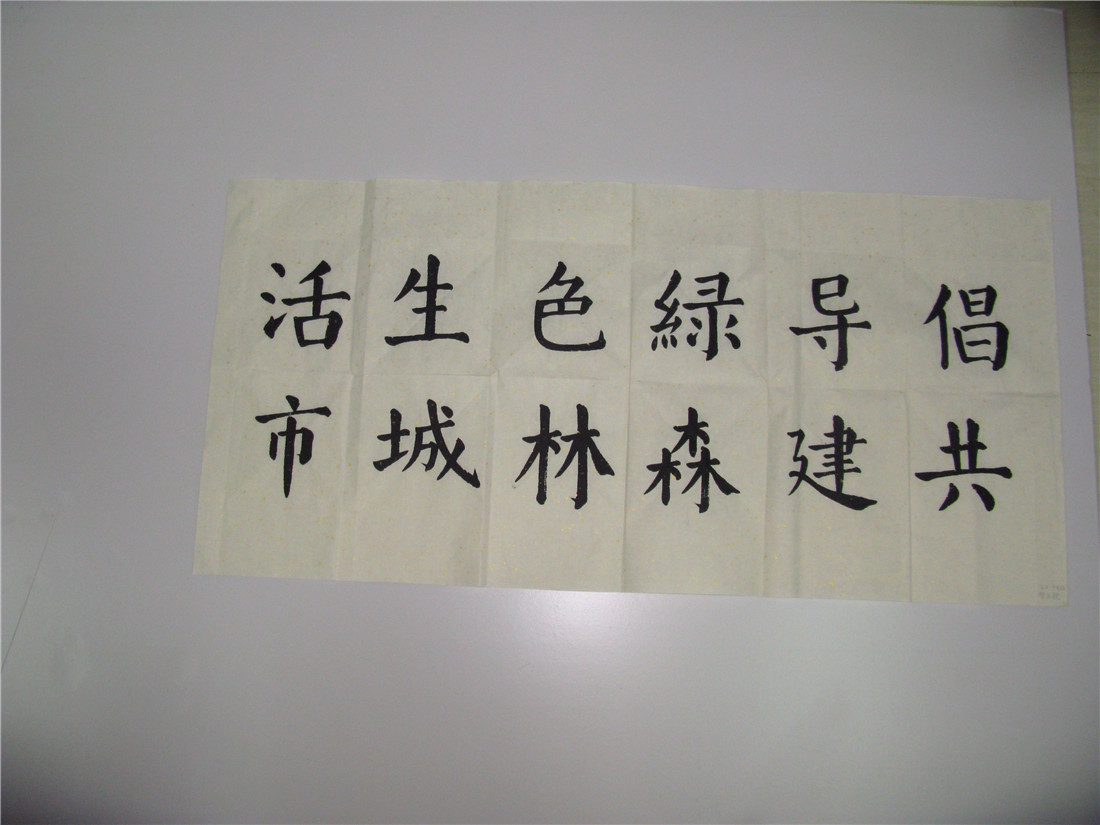 倡导緑色生活
共建森林城市